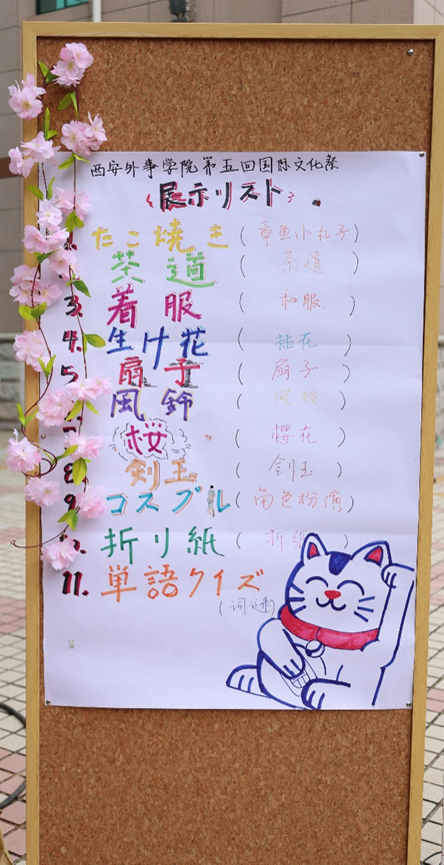 西安外事学院第五回国际文化祭
展示リスト
1. たこ焼き (章鱼小丸子)
茶道 (茶道)
3. 着服 (和服)
4. 生け花 (插花)
5 扇子 (扇子)
風鈴 (风铃)
桜 (樱花)
8 剣玉 (剑玉)
9. コスプレ (角色扮演)
折り紙 (折纸)
11. 単語クイズ